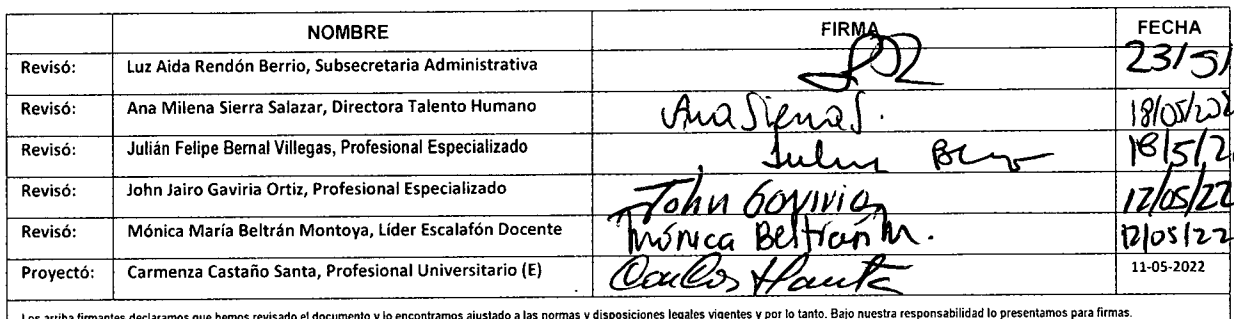 NOMBRE FIRMA FECHA
Revisó: Luz Aida Rendón Berrio, Subsecretaria Administrativa 23/5/
Revisó: Ana Milena Sierra Salazar, Directora Talento Humano Ana Sierra S. 18/05/202
Revisó: Julián Felipe Bernal Villegas, Profesional Especializado 18/5/2
Revisó: John Jairo Gaviria Ortiz, Profesional Especializado John Gaviria 12/05/22
Revisó: Mónica María Beltrán Montoya, Líder Escalafón Docente Mónica Beltrán M. 12/05/22
Proyectó: Carmenza Castaño Santa, Profesional Universitario (E) 11-05-2022
Los arriba firmantes declaramos que hemos revisado el documento y lo encontramos ajustado a las normas y disposiciones legales vigentes y por lo tanto. Bajo nuestra responsabilidad lo presentamos para firmas.